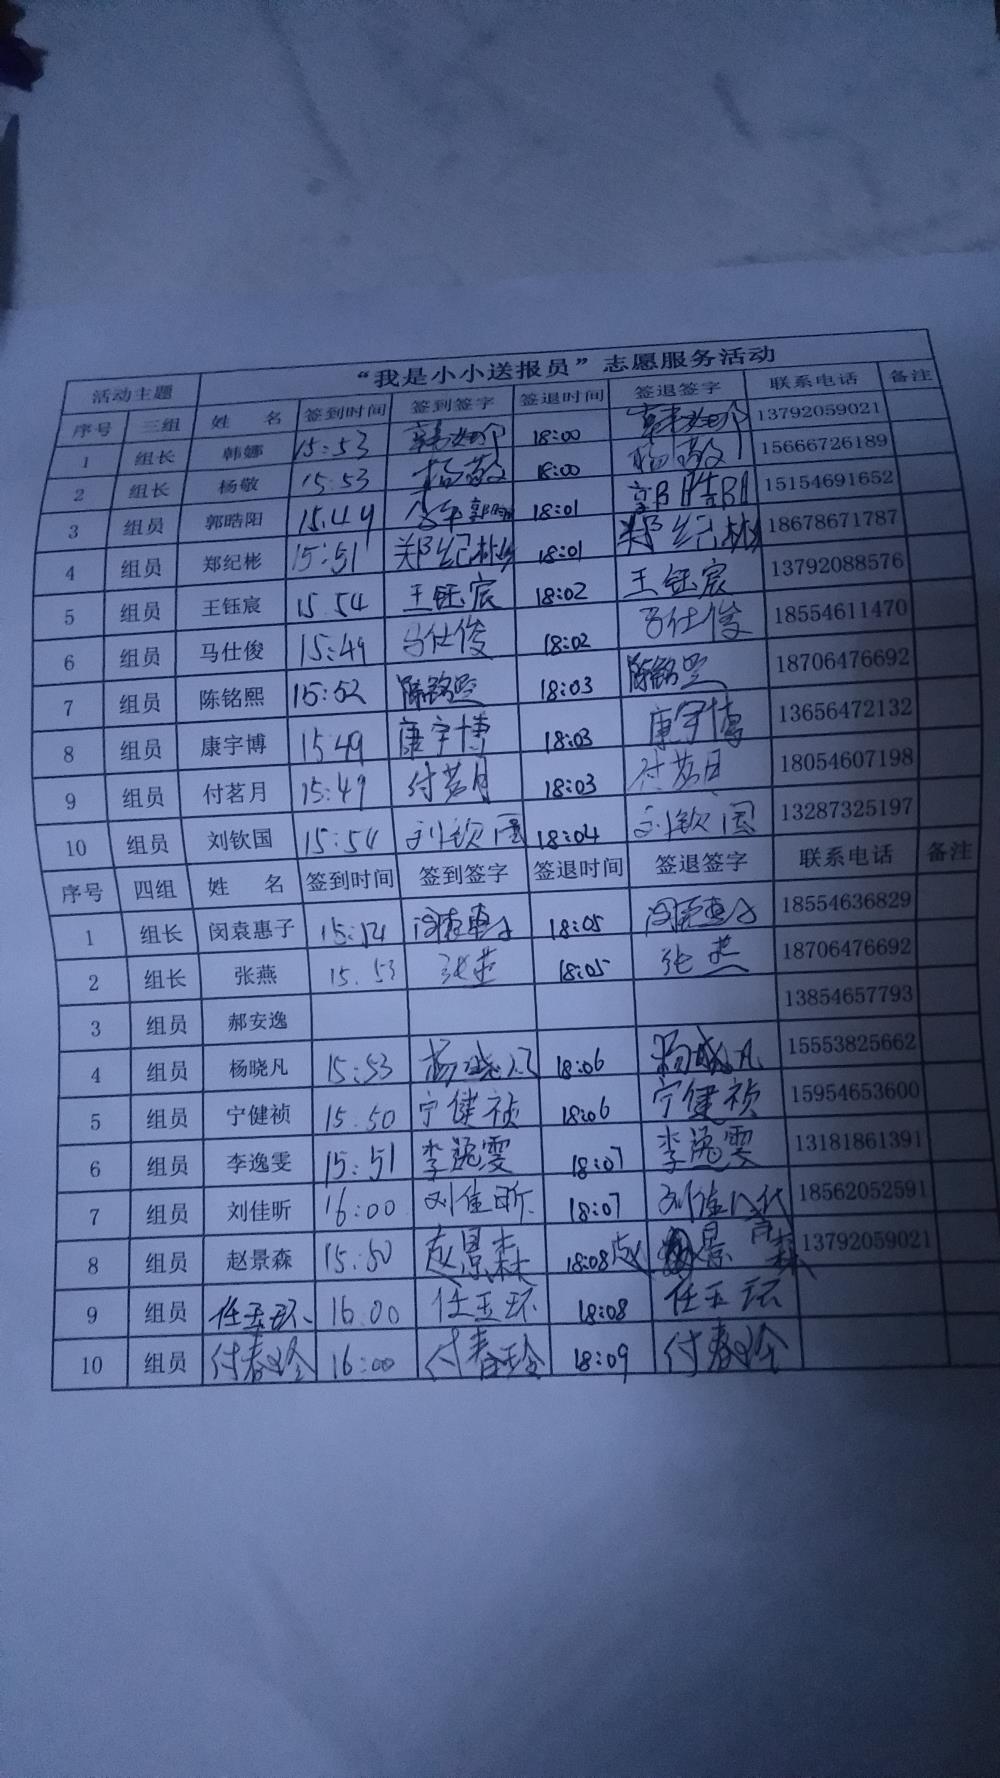 活动主题 “我是小小送报员”志愿服务活动
序号 三组 姓 名 签到时间 签到签字 签退时间 签退签字 联系电话 备注
1 组长 韩娜 15:53 韩娜 18:00 韩娜 13792059021
2 组长 杨敬 15:53 杨敬 18:00 杨敬 15666726189
3 组员 郭晧阳 15:49 18:01 15154691652
4 组员 郑纪彬 15:51 郑纪彬 18:01 郑纪彬 18678671787
5 组员 王钰宸 15:54 王钰宸 18:02 王钰宸 13792088576
6 组员 马仕俊 15:49 马仕俊 18:02 马仕俊 18554611470
7 组员 陈铭熙 15:52 陈铭熙 18:03 陈铭熙 18706476692
8 组员 康宇博 15:49 康宇博 18:03 康宇博 13656472132
9 组员 付茗月 15:49 付茗月 18:03 付茗月 18054607198
10 组员 刘钦国 15:54 刘钦国 18:04 刘钦国 13287325197
序号 四组 姓 名 签到时间 签到签字 签退时间 签退签字 联系电话 备注
1 组长 闵袁惠子 闵袁惠子 18:05 闵袁惠子 18554636829
2 组长 张燕 15.53 张燕 18:05 张燕 18706476692
3 组员 郝安逸 13854657793
4 组员 杨晓凡 15:53 杨晓凡 18:06 杨晓凡 15553825662
5 组员 宁健祯 15.50 宁健祯 18:06 宁健祯 15954653600
6 组员 李逸雯 15:51 李逸雯 18:07 李逸雯 13181861391
7 组员 刘佳昕 16:00 刘佳昕 18:07 刘佳 18562052591
8 组员 赵景森 15:50 赵景森 18:08 赵景森 13792059021
9 组员 任玉环 16.00 任玉环 18:08 任玉环
10 组员 付春玲 16:00 付春玲 18:09 付春玲